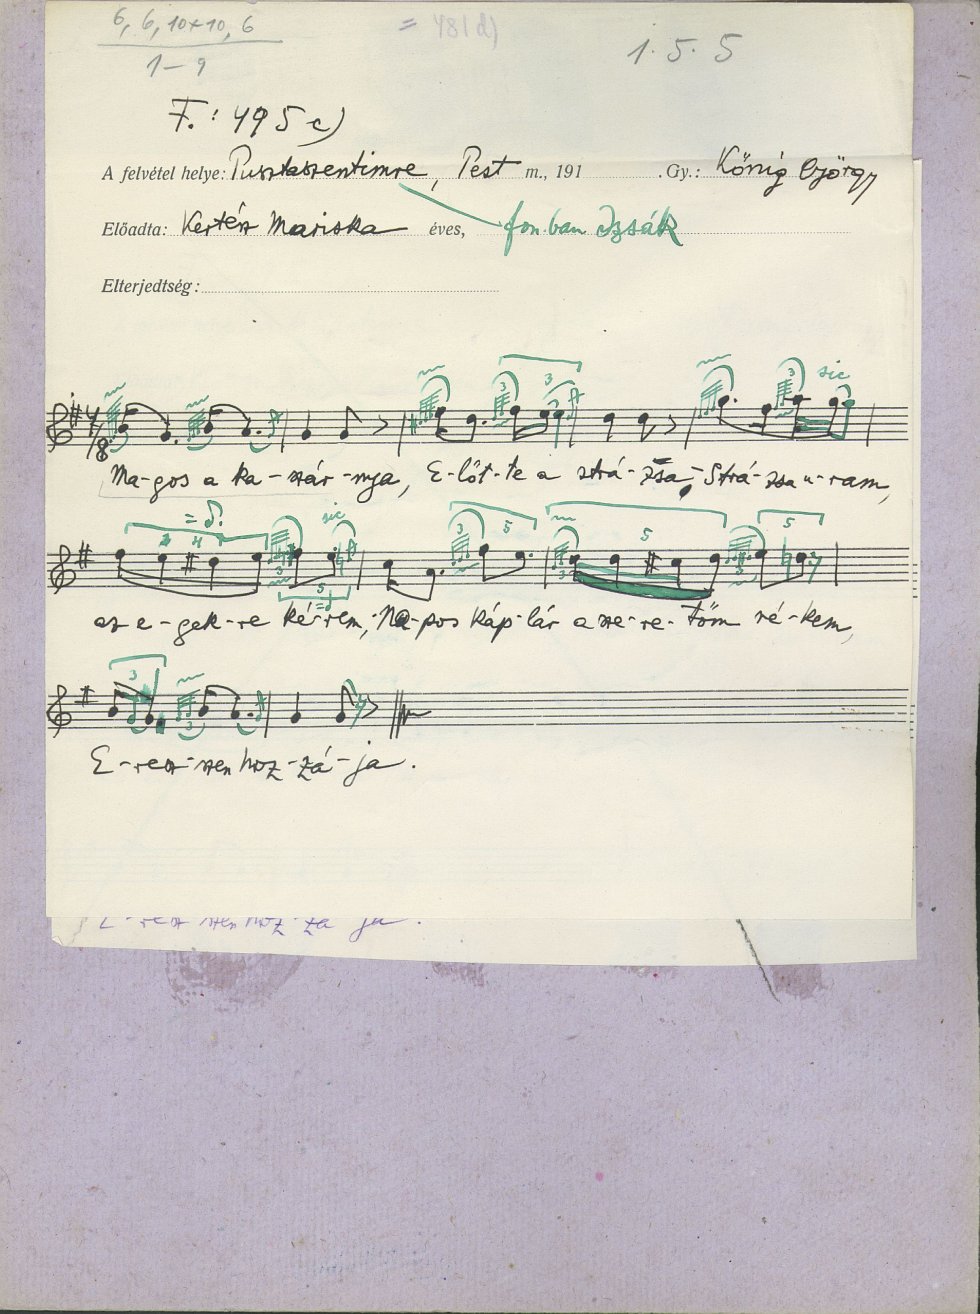 6, 6, 10+10, 6
= 481 d)
1-9
1. 5. 5
F.: 495 c)
A felvétel helye: Pusztaszentimre, Pest m., 191 . Gy.: Kőnig György
Előadta: Kertész Mariska éves, fon.ban Izsák
Elterjedtség:
3 3 3 sic
4/8
Ma-gos a ka-szár-nya, E-lőt-te a strá-zsa, Strá-zsa u-ram,
= d. sic 3 5 5 5
az e-gek-re ké-rem, Na-pos káp-lár a sze-re-tőm né-kem,
3 3
E-resz-szen hoz-zá-ja.
E-resz-szen hoz-zá ja.